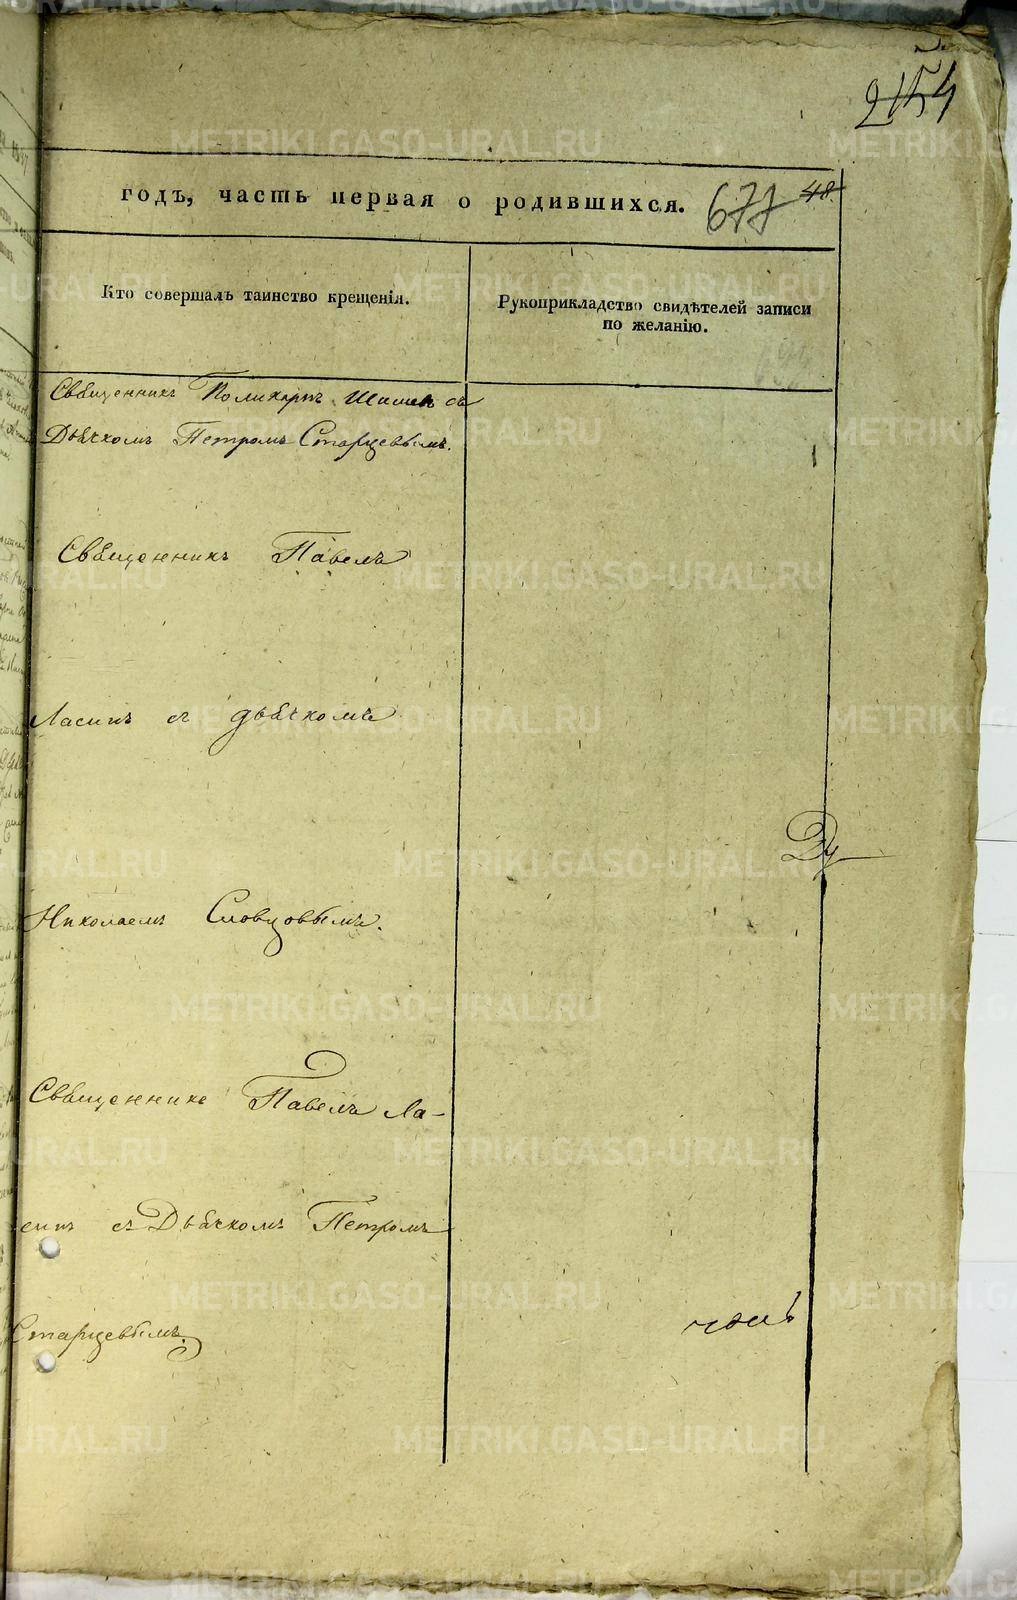 2154
годъ, часть первая о родившихся. 677 48.
Кто совершалъ таинство крещенія.
Рукоприкладство свидѣтелей записи
по желанію.
Священникъ Поликарпъ Шишевъ съ
Дьячкомъ Петромъ Старцевымъ.
Священникъ Павелъ
Ласинъ съ дьячкомъ
Ду
Николаемъ Словцовымъ.
Священникъ Павелъ Ла-
синъ съ Дьячкомъ Петромъ
Старцевымъ.
METRIKI.GASO-URAL.RU